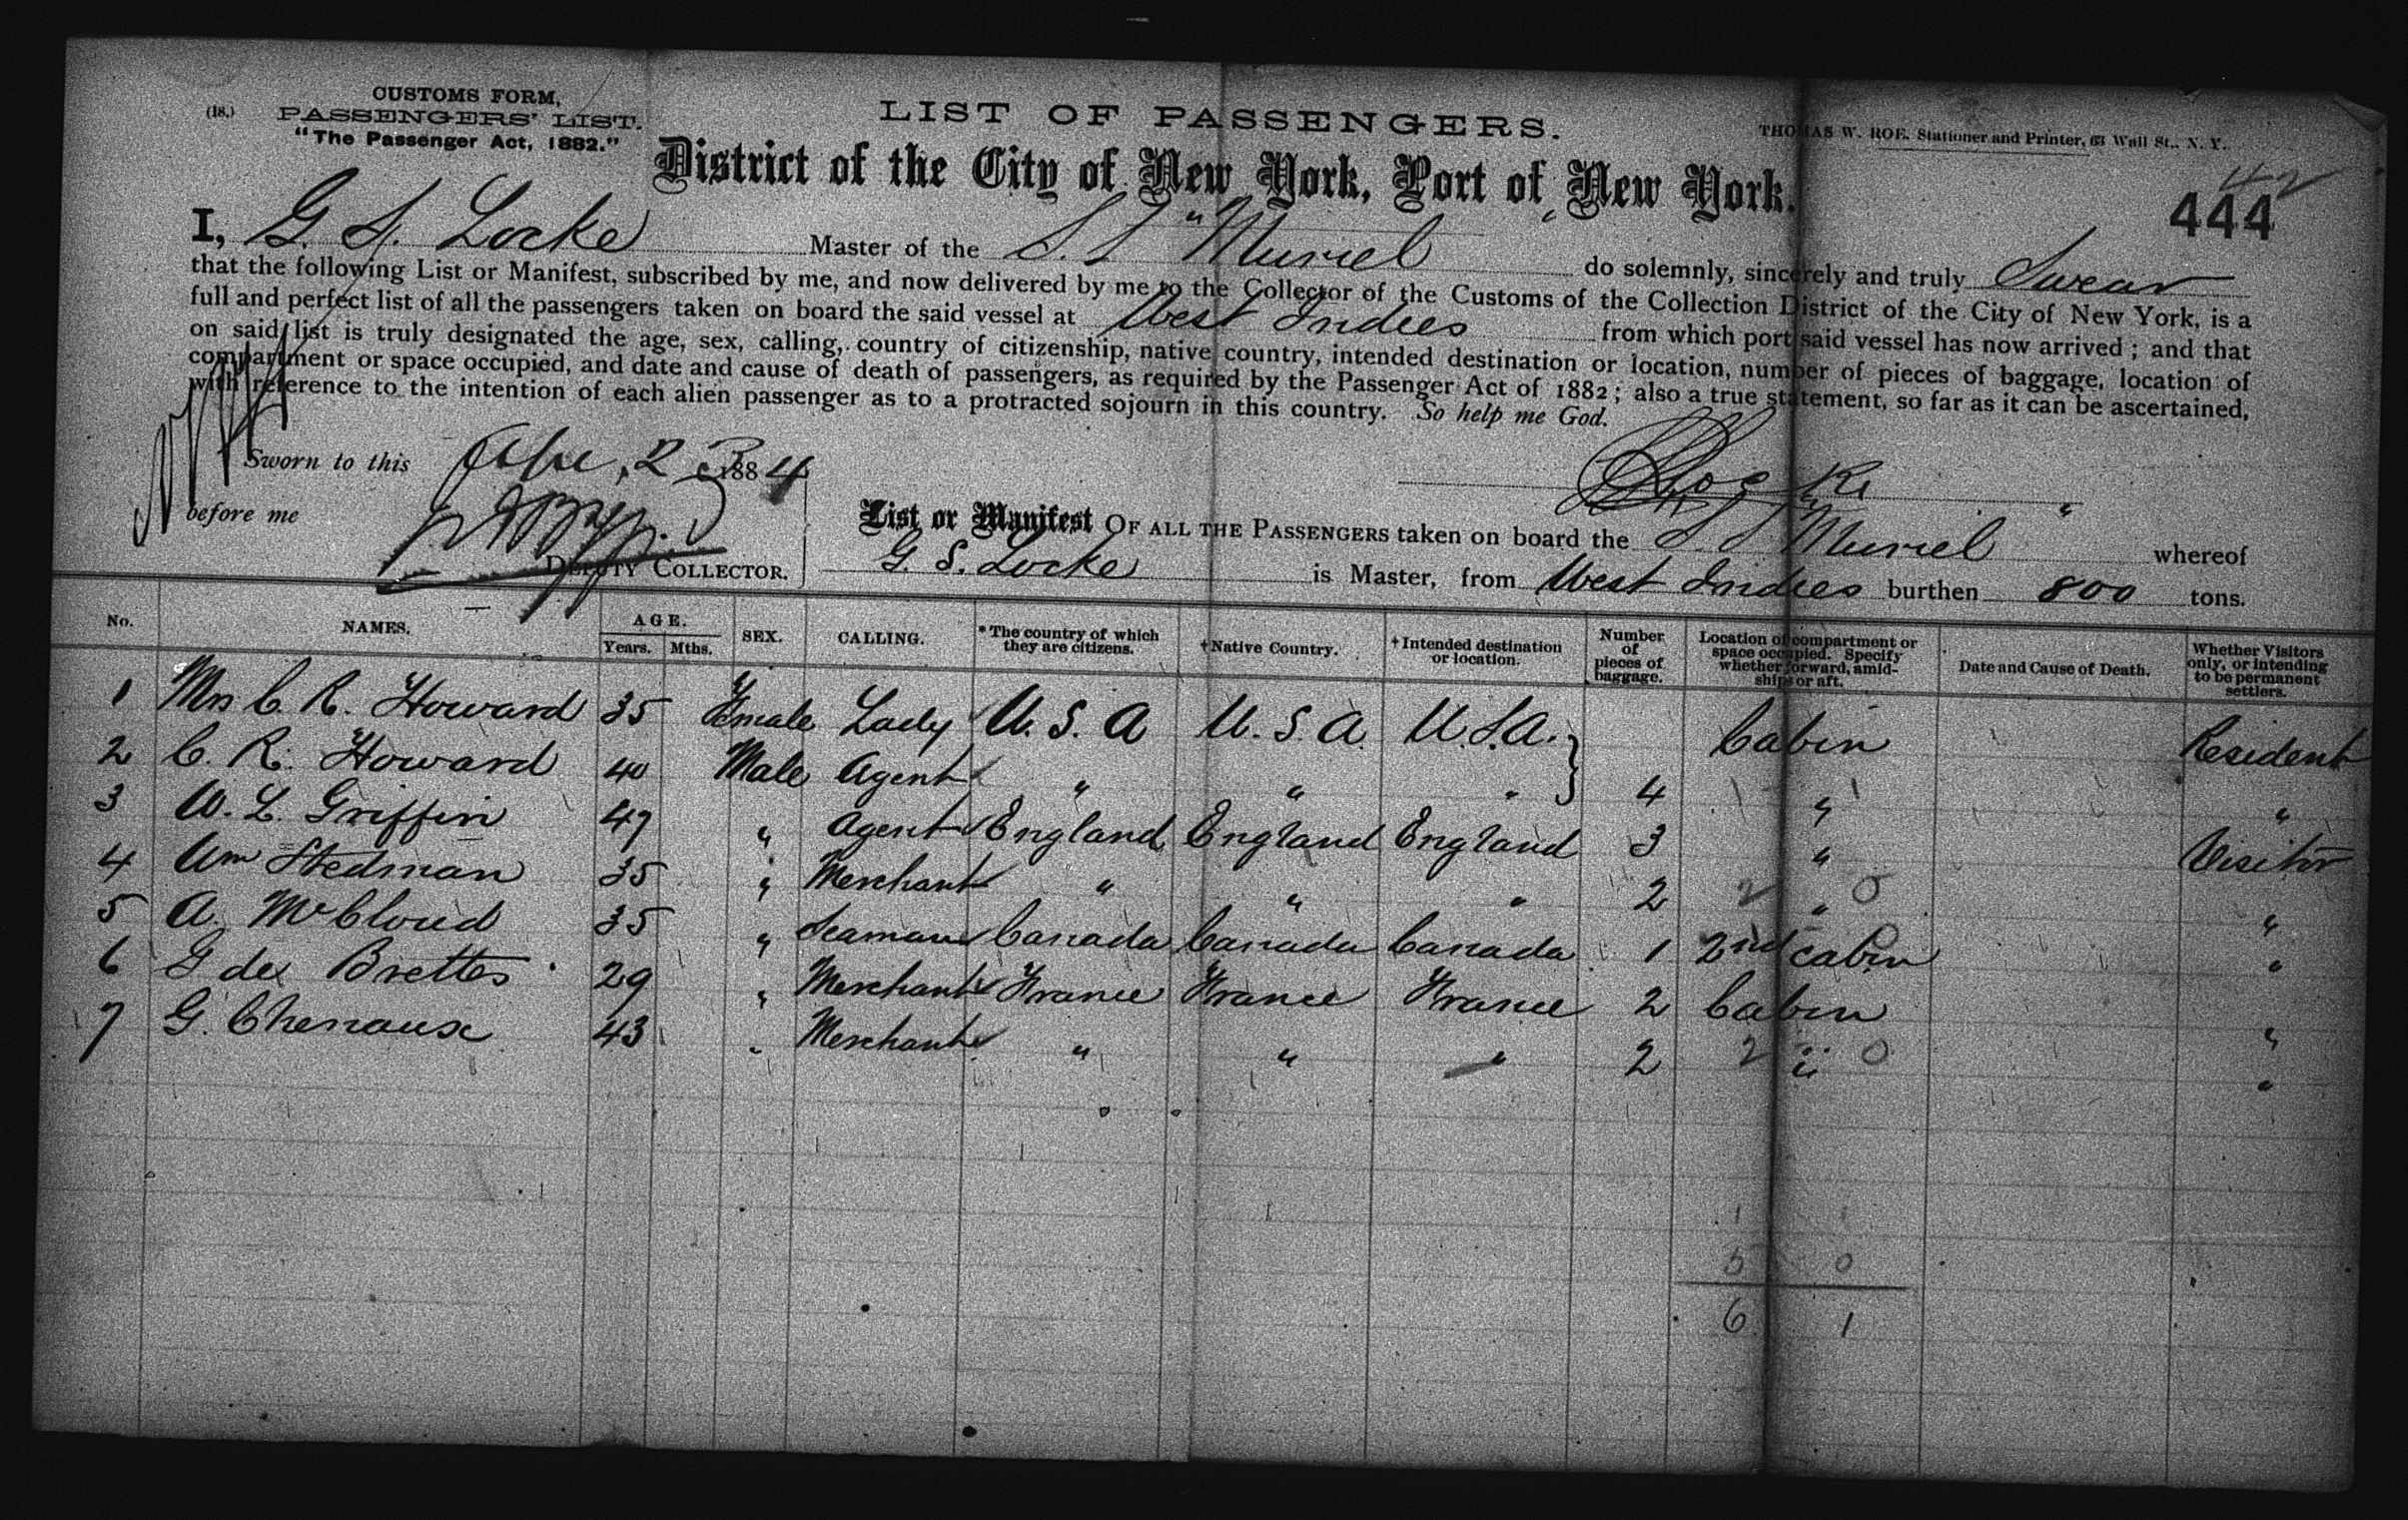 CUSTOMS FORM,
(18.) PASSENGERS' LIST.
"The Passenger Act, 1882."
LIST OF PASSENGERS.
THOMAS W. ROE. Stationer and Printer, 63 Wall St., N. Y.
District of the City of New York, Port of New York.
42
444
I, G. S. Locke Master of the S. S "Muriel do solemnly, sincerely and truly Swear
that the following List or Manifest, subscribed by me, and now delivered by me to the Collector of the Customs of the Collection District of the City of New York, is a
full and perfect list of all the passengers taken on board the said vessel at West Indies from which port said vessel has now arrived; and that
on said list is truly designated the age, sex, calling, country of citizenship, native country, intended destination or location, number of pieces of baggage, location of
compartment or space occupied, and date and cause of death of passengers, as required by the Passenger Act of 1882; also a true statement, so far as it can be ascertained,
with reference to the intention of each alien passenger as to a protracted sojourn in this country. So help me God.
Sworn to this 1884
Locke
before me
DEPUTY COLLECTOR.
List or Manifest OF ALL THE PASSENGERS taken on board the S S Muriel " whereof
G. S. Locke is Master, from West Indies burthen 800 tons.
No. NAMES. AGE. Years. Mths. SEX. CALLING. *The country of which they are citizens. †Native Country. †Intended destination or location. Number of pieces of baggage. Location of compartment or space occupied. Specify whether forward, amidships or aft. Date and Cause of Death. Whether Visitors only, or intending to be permanent settlers.
1 Mrs C. R. Howard 35 Female Lady U. S. A U. S. A. U.S.A. Cabin Resident
2 C. R. Howard 40 Male Agent " " " 4 " "
3 W. L. Griffin 47 " Agent England England England 3 " Visitor
4 Wm Stedman 35 " Merchant " " " 2 2 " 0 "
5 A. McCloud 35 " Seaman Canada Canada Canada 1 2nd cabin "
6 G des Brettes 29 " Merchant France France France 2 Cabin "
7 G. Chenaux 43 " Merchant " " " 2 2 " 0 "
1 1
5 0
6 1